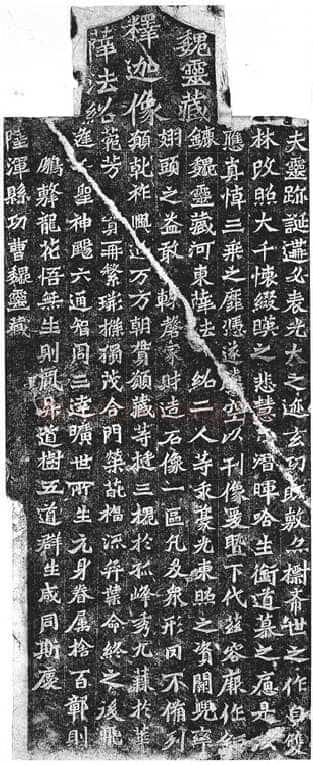 魏靈藏
釋迦像
薛法紹
夫靈跡誕遘必表光大之迹玄功既敷亦標希世之作自雙
林改照大千懷綴暎之悲慧潛暉哈生銜道慕之痛是以
應真悼三乘之靡憑遂騰空以刊像爰暨下代茲容厥作鉅
鏕魏靈藏河東薛法紹二人等求豪光東照之資闕兜率
翅頭之益敢輒磬家財造石像一區凡及眾形罔不備列
願乾祚興延万方朝貫願藏等挺三槐於孤峰秀九蕀於華
菀芳實再繁荊條獨茂合門榮葩福流奕葉命終之後飛
聖神颺六通智周三達曠世所生元身眷屬捨百鄣則
鵬擊龍花悟無生則鳳昇道樹五道群生咸同斯慶
陸渾縣功曹魏靈藏